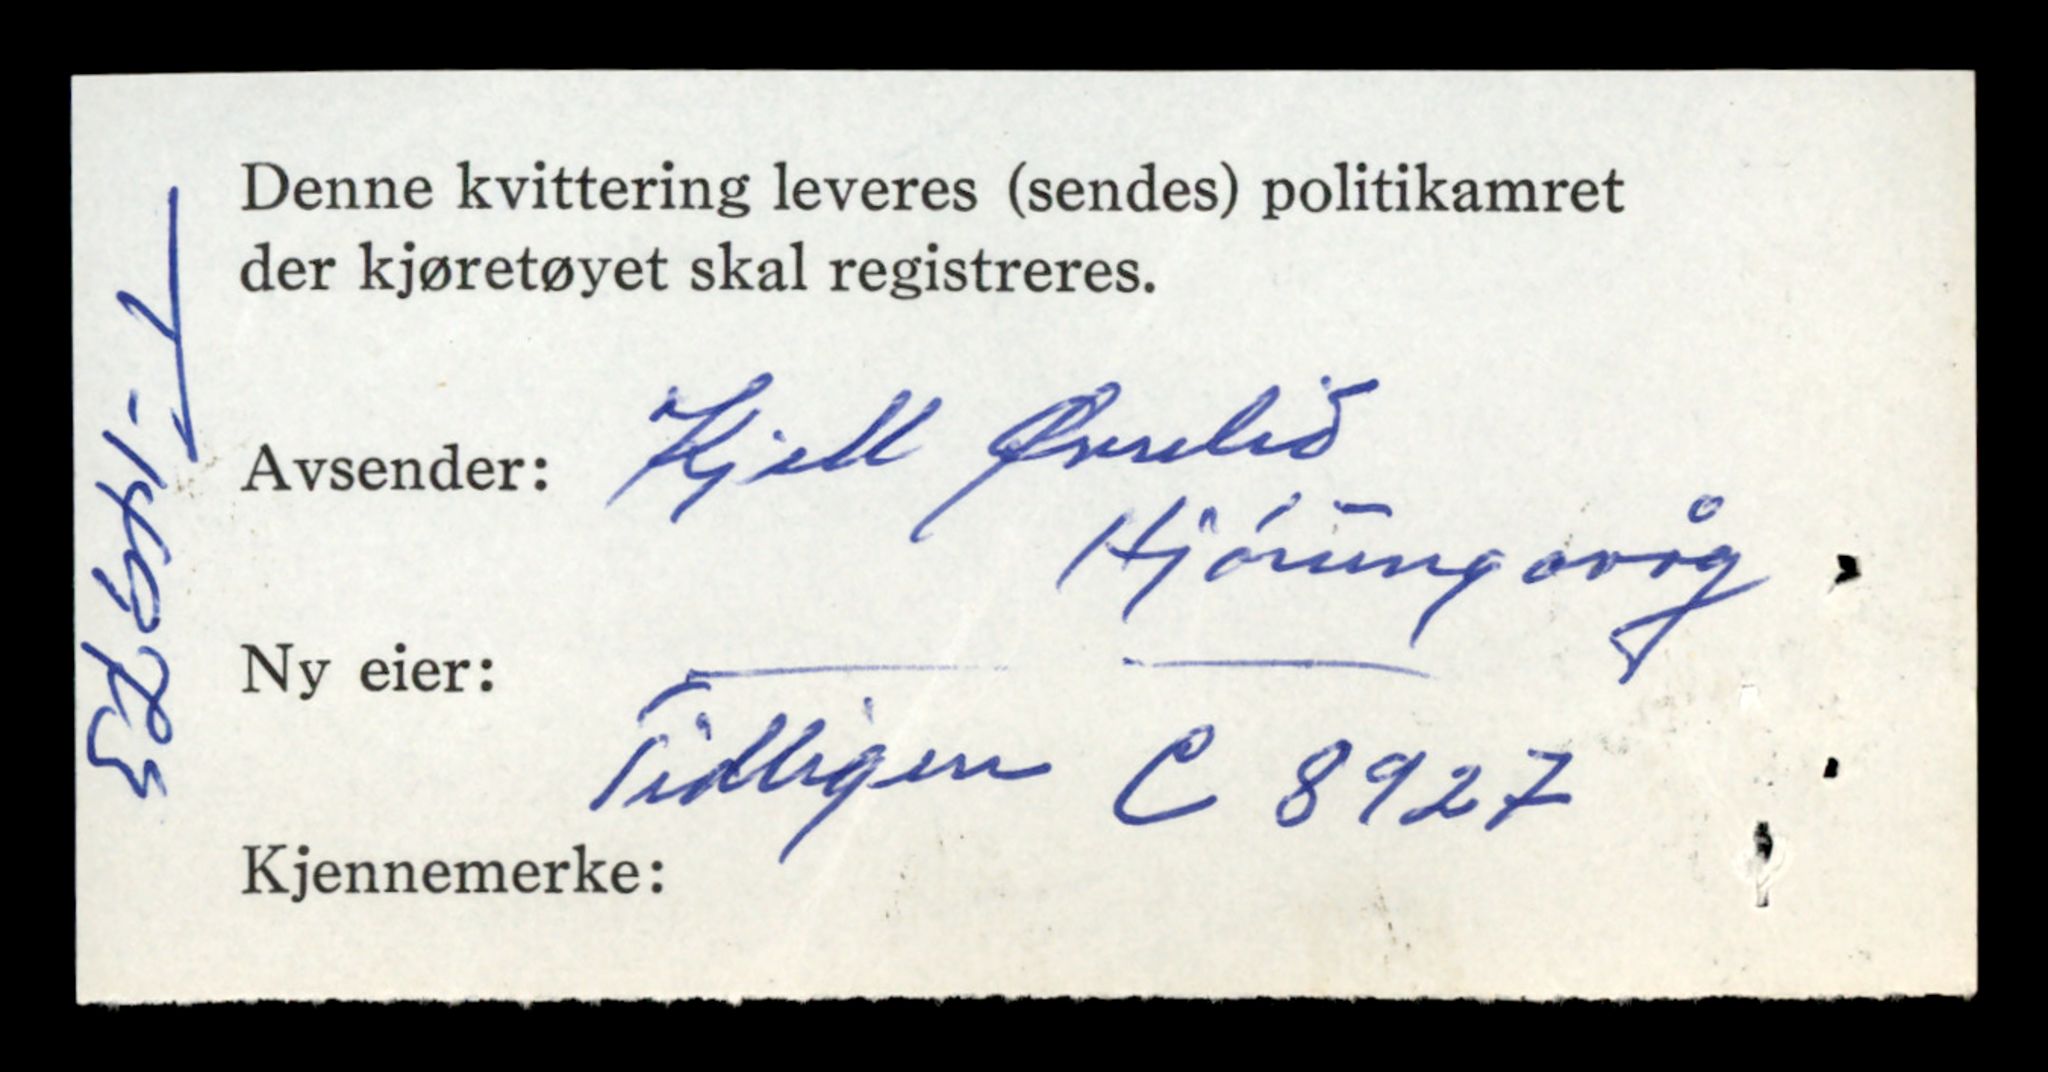 Denne kvittering leveres (sendes) politikamret
der kjøretøyet skal registreres.
Avsender: Kjell Øvrelid
Hjørungavåg
Ny eier: — —
Tidligere C 8927
Kjennemerke:
T-14973